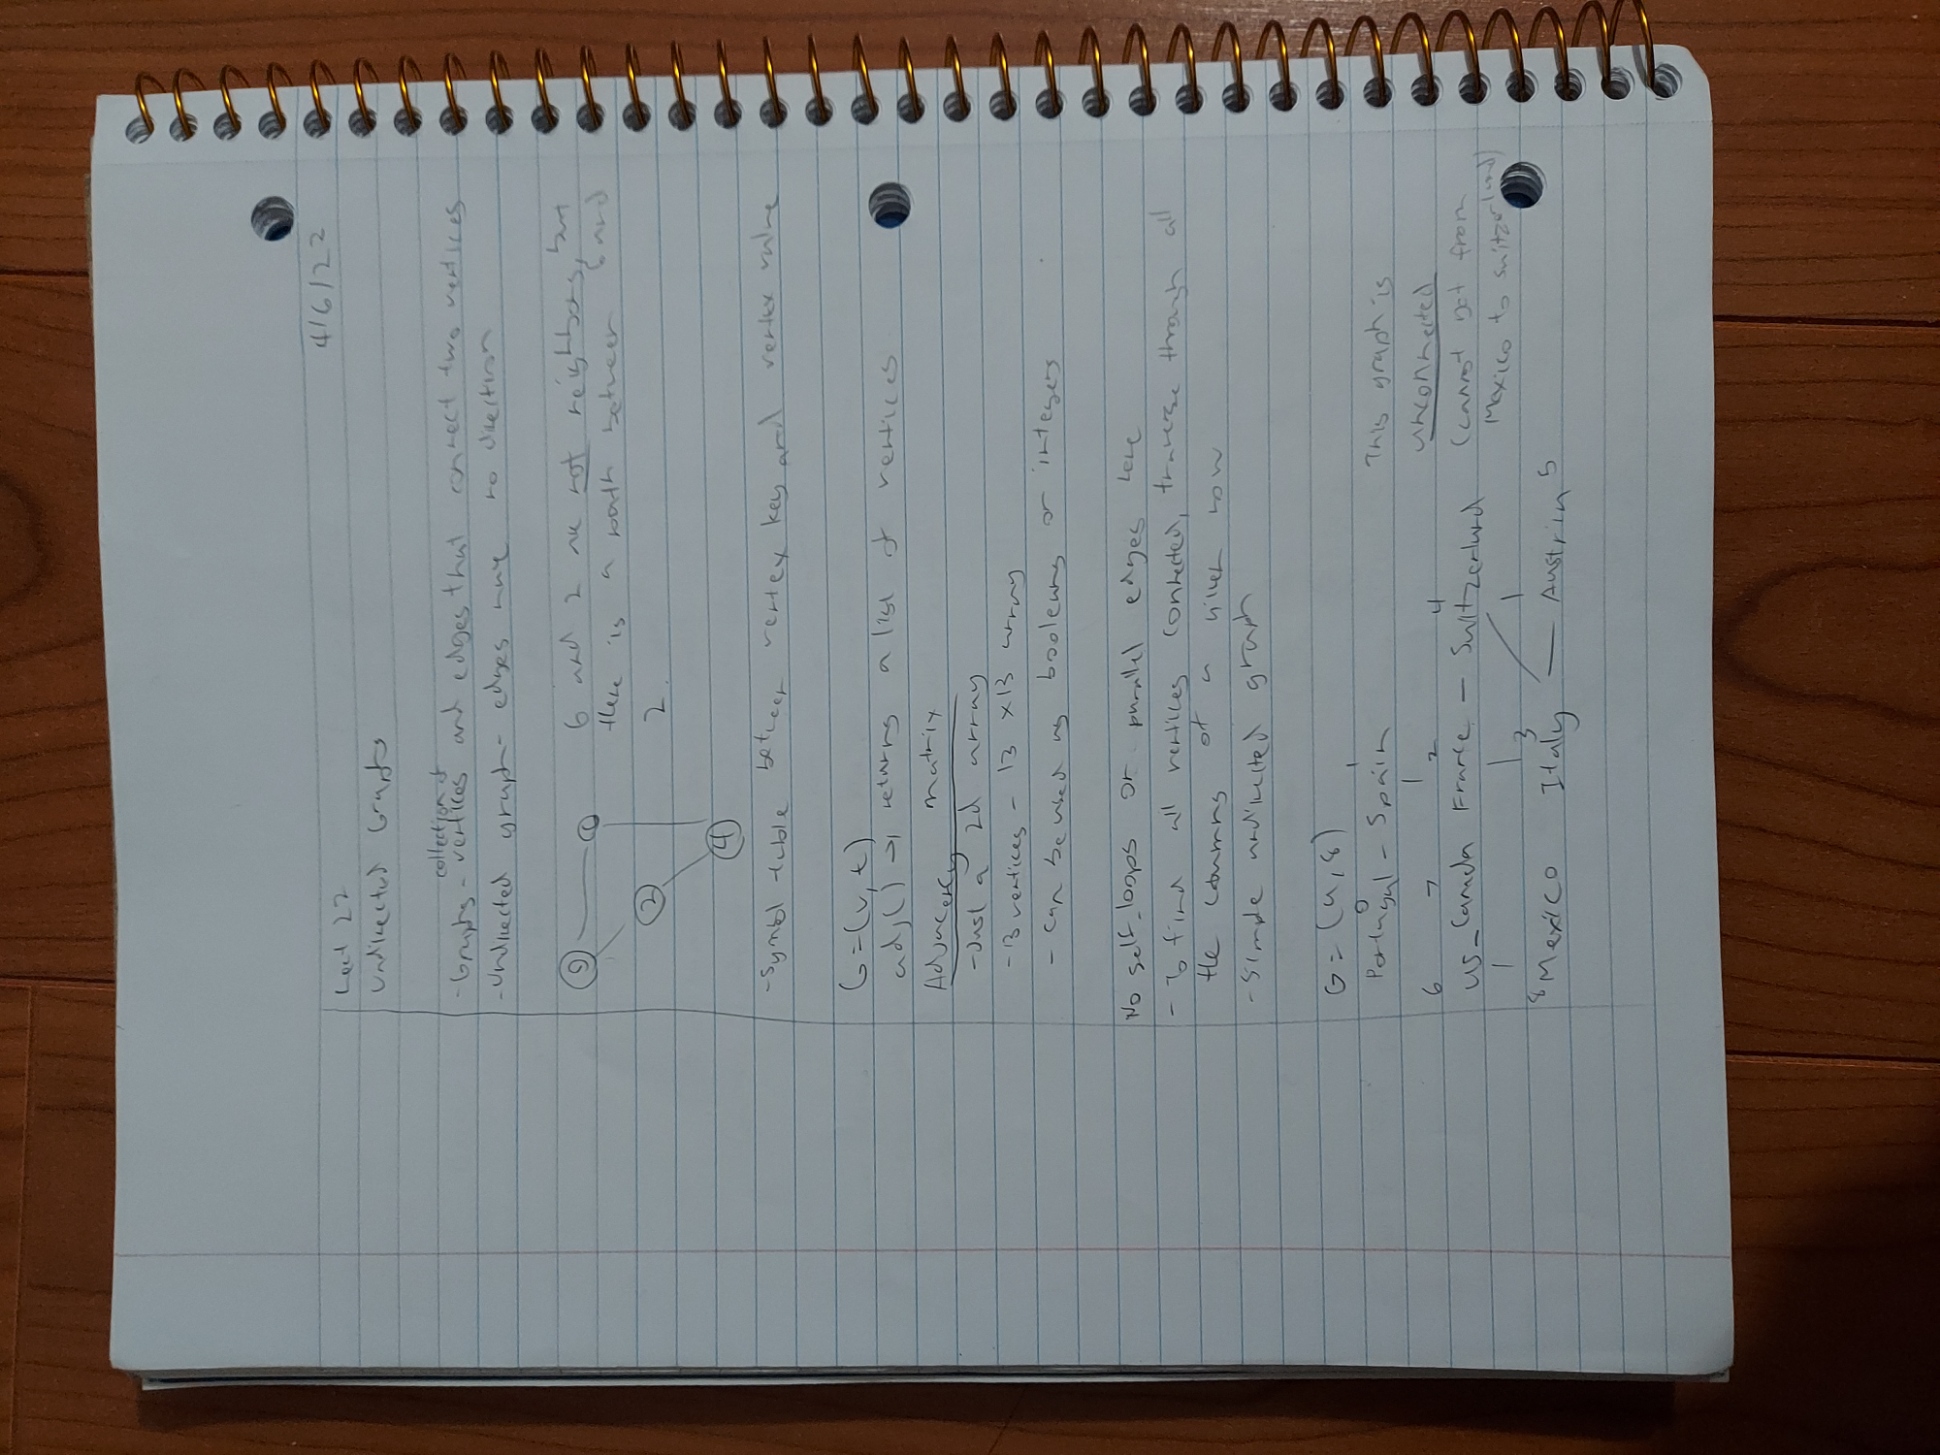 4/6/22
Lect 22
Undirected Graphs
collection of
- Graphs - vertices and edges that connect two vertices
- Undirected graph - edges have no direction
6 and 2 are not neighbors, but
there is a path between 6 and
2.
2
4
- Symbol table between vertex key and vertex value
G = (V, E)
adj() → returns a list of vertices
Adjacency matrix
- Just a 2d array
- 13 vertices - 13 x 13 array
- can be used as booleans or integers
No self-loops or parallel edges here
- To find all vertices connected, traverse through all
the columns of a given row
- Simple undirected graph
G = (9, 8)
Portugal - Spain This graph is
0 1
unconnected
6 7 2 4
US - Canada France - Switzerland (cannot get from
Mexico to Switzerland)
3
8 Mexico Italy — Austria 5